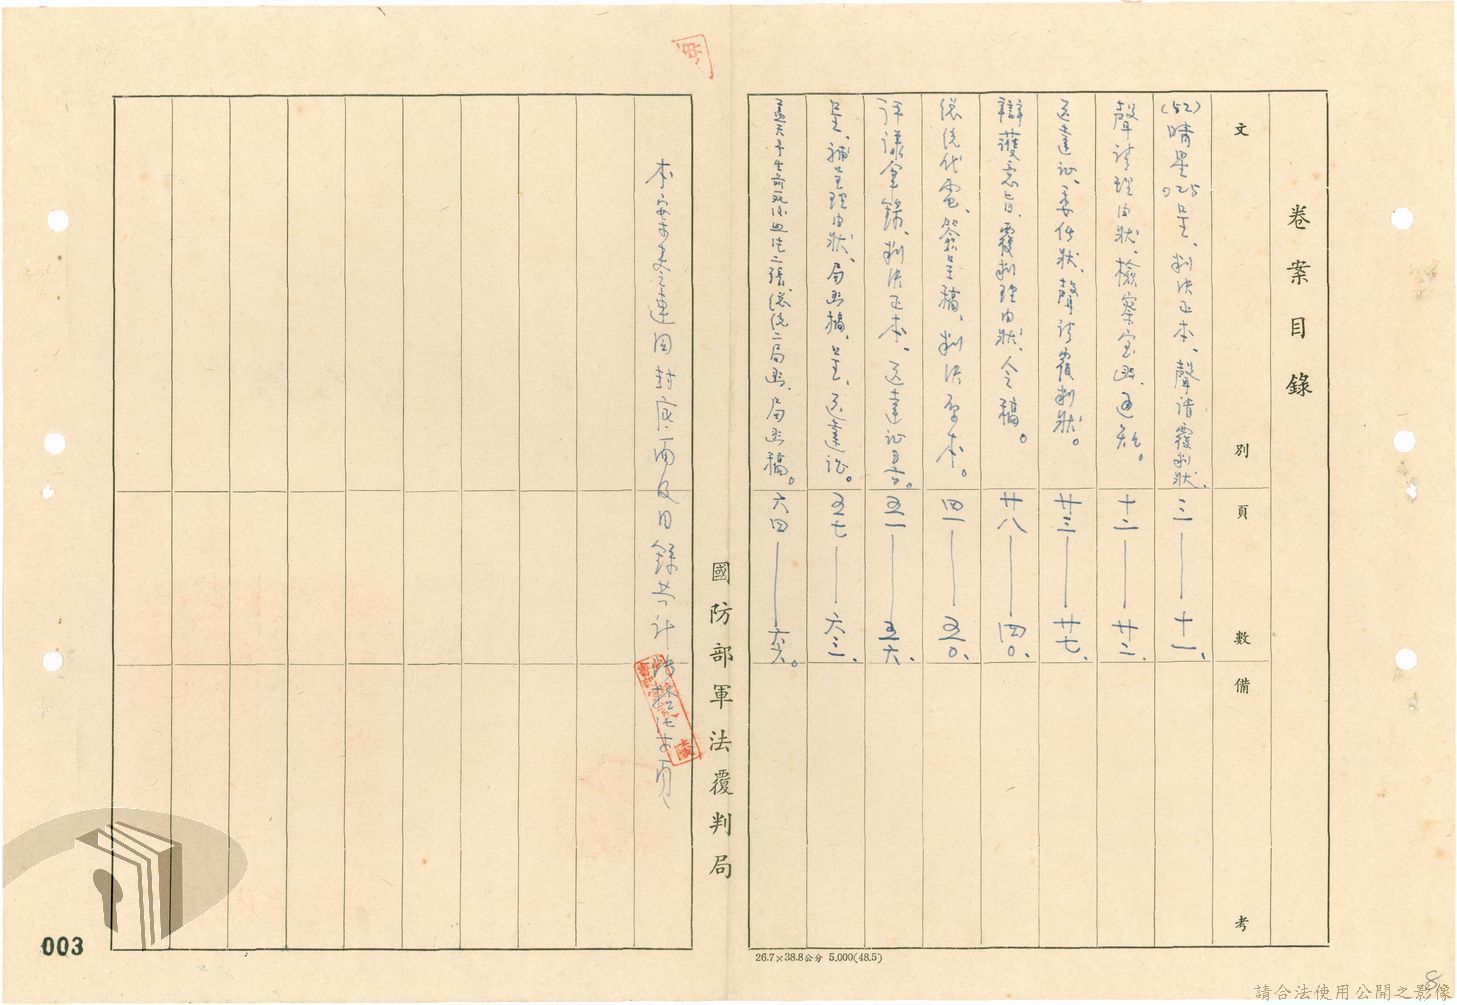 卷案目錄
文別 頁數 備考
(52)晴星025呈、判決正本、聲請覆判狀、 三——十一、
聲請理由狀、檢察室函、通知。 十二——廿二、
送達証、委任狀、聲請覆判狀。 廿三——廿七、
辯護意旨、覆判理由狀、令稿。 廿八——四〇、
總統代電、簽呈稿、判決原本。 四一——五〇、
評議會錄、判決正本、送達証書。 五一——五六、
呈、補呈理由狀、局函稿、呈、送達証。 五七——六三、
二張、總統二局函、局函稿。 六四——六六。
國防部軍法覆判局
本案卷連同封底面及目錄共計 頁
26.7×38.8公分 5,000(48.5)
003
8
請合法使用公開之影像